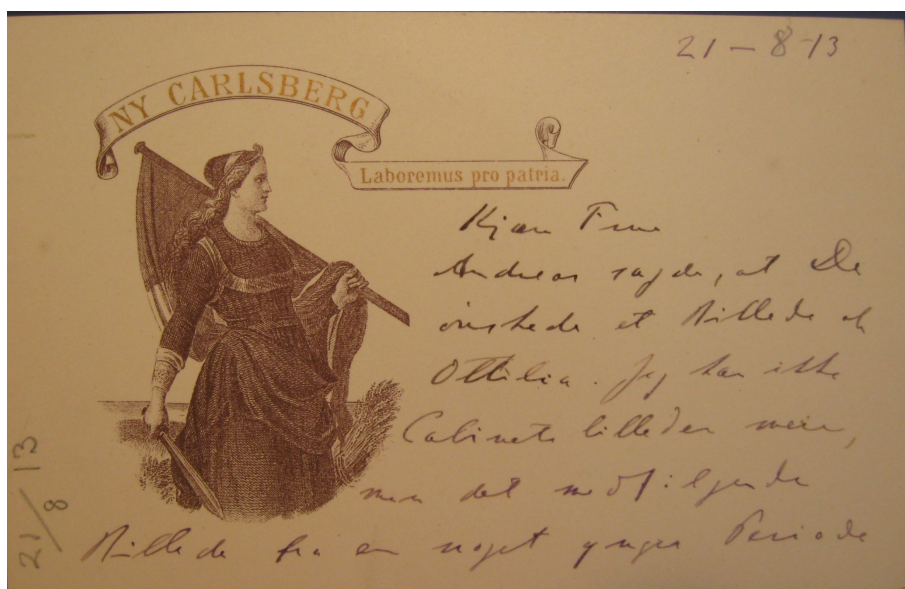 21-8-13
NY CARLSBERG
Laboremus pro patria.
Kjære Frue
Andreas sagde, at De
önskede et Billede af
Ottilia. Jeg har ikke
Cabinets billeder mere,
men det medfölgende
Billede fra en noget yngre Periode
21/8 13